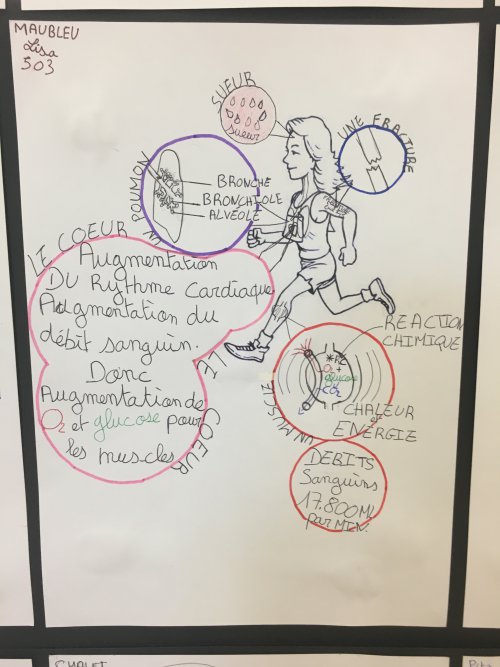 MAUBLEU
Lisa
503
SUEUR
sueur
UNE FRACTURE
UN POUMON
BRONCHE
BRONCHIOLE
ALVÉOLE
LE COEUR
Augmentation
DU Rythme Cardiaque
Augmentation du
débit sanguin.
Donc
Augmentation de
O2 et glucose pour
les muscles
LE COEUR
UN MUSCLE
REACTION
CHIMIQUE
O2 +
glucose
CO2
CHALEUR
et
ENERGIE
DEBITS
Sanguins
17.800ML
par MIN.
CHALET